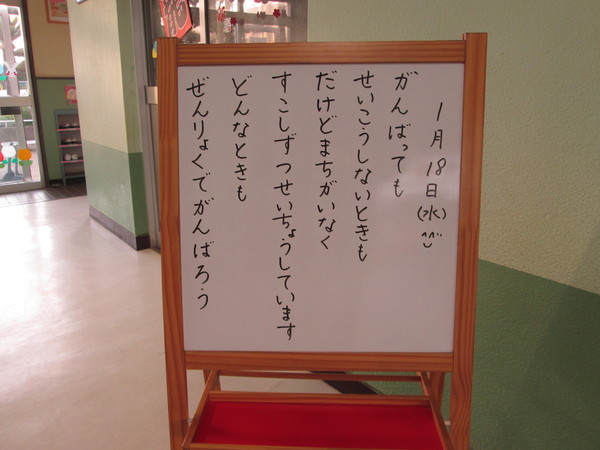 1月18日(水)^^
がんばっても
せいこうしないときも
だけどまちがいなく
すこしずつせいちょうしています
どんなときも
ぜんりょくでがんばろう